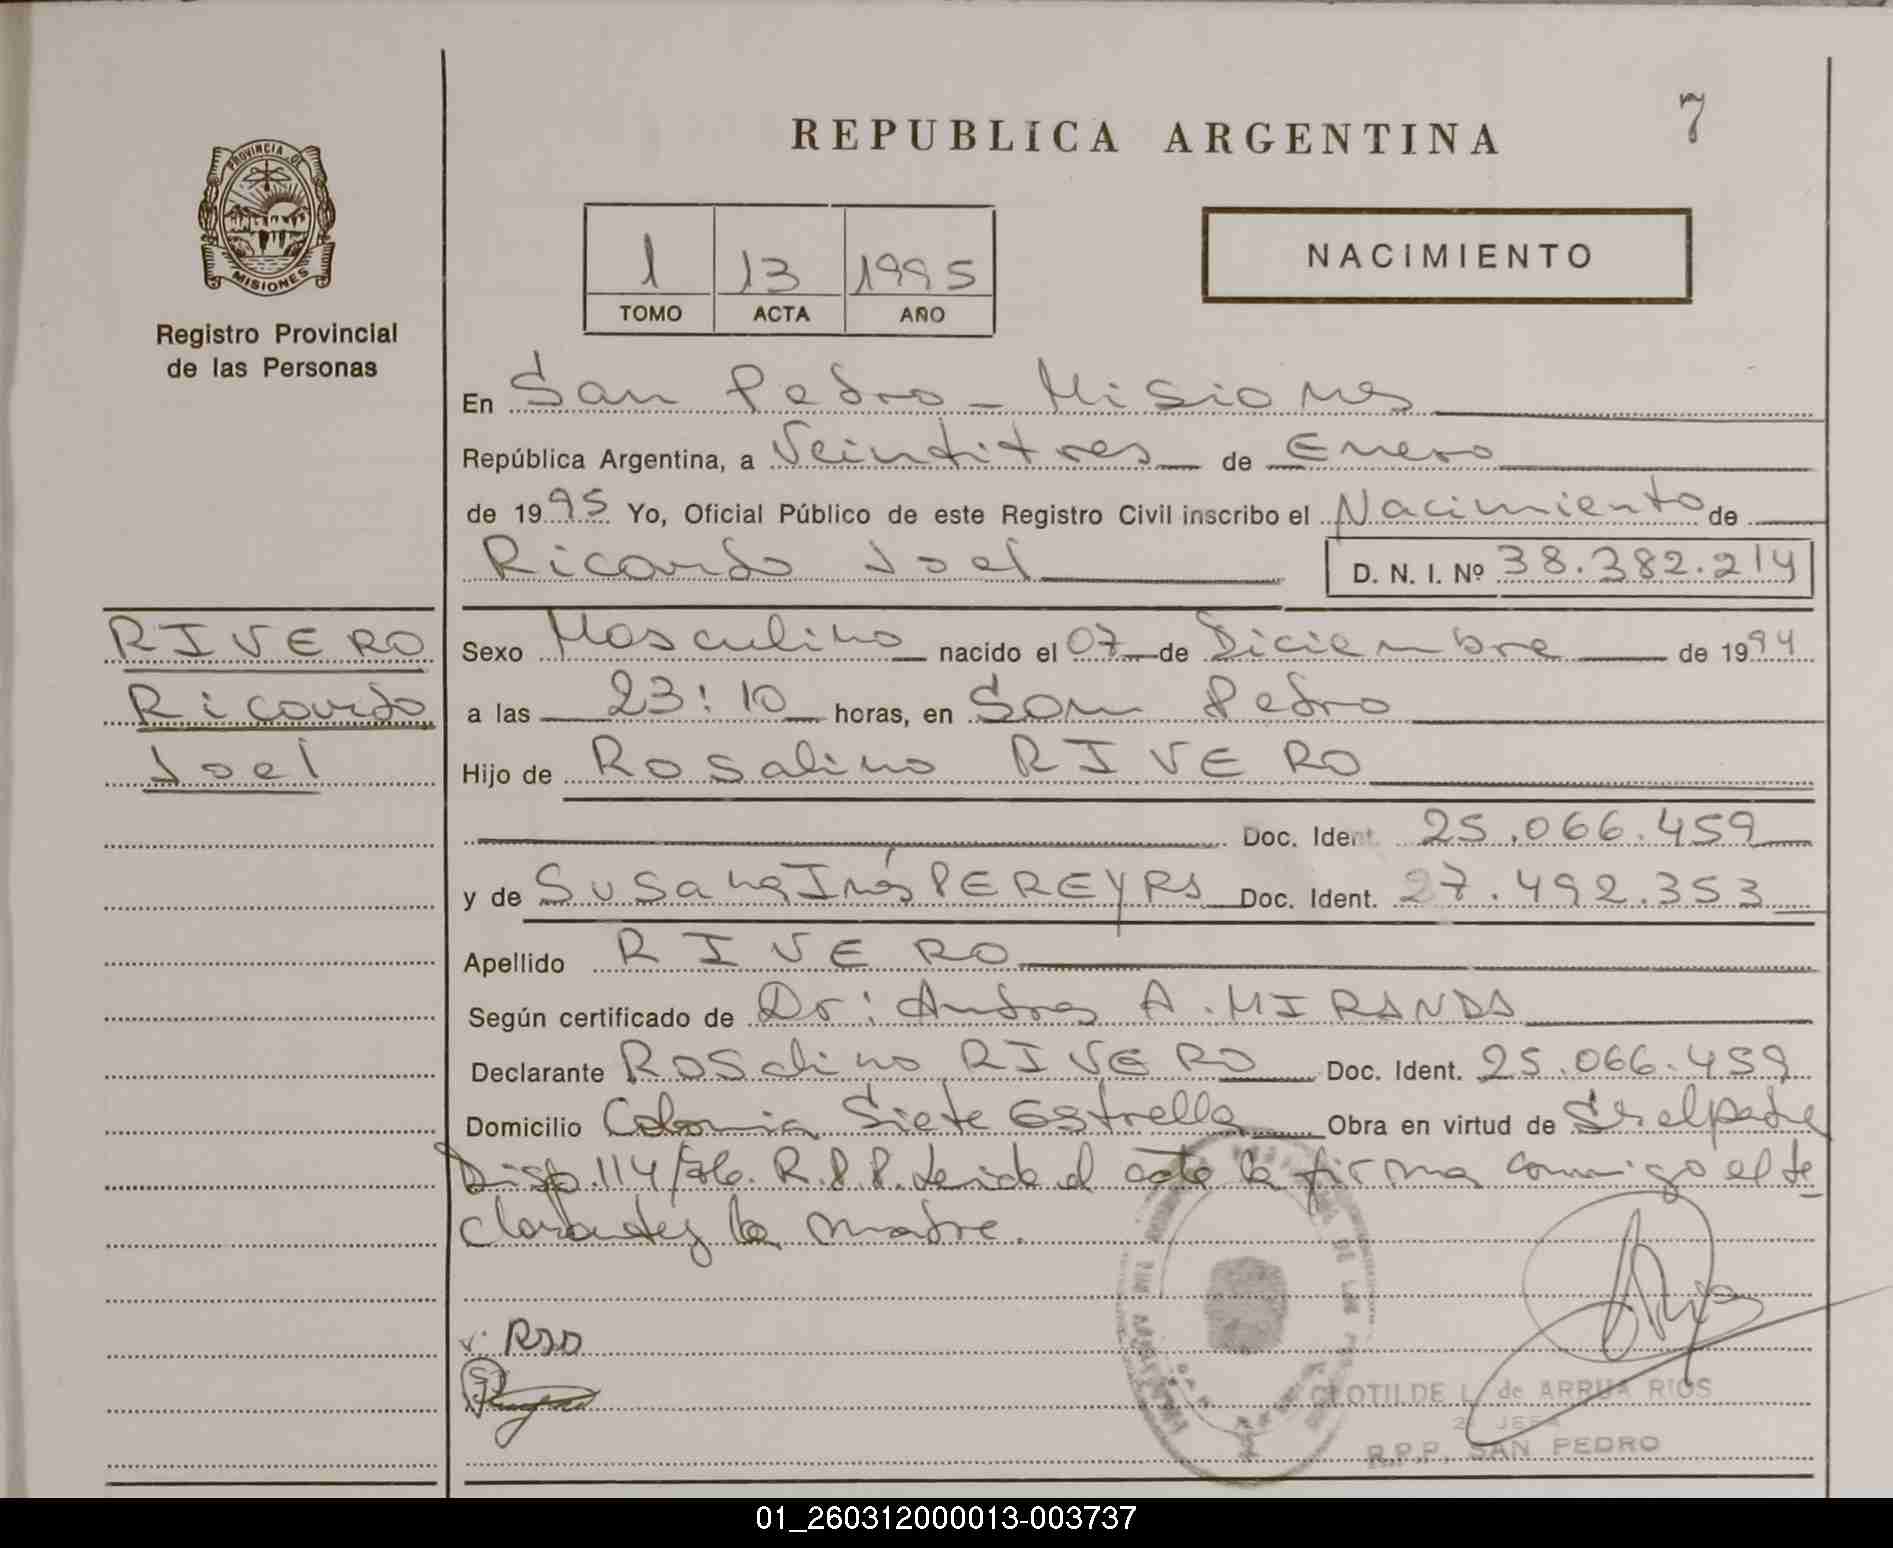 7
REPUBLICA ARGENTINA
PROVINCIA DE
MISIONES
Registro Provincial
de las Personas
1 13 1995
TOMO ACTA AÑO
NACIMIENTO
En San Pedro - Misiones
República Argentina, a Veintitres de Enero
de 1995 Yo, Oficial Público de este Registro Civil inscribo el Nacimiento de
Ricardo Joel D. N. I. Nº 38.382.214
RIVERO
Ricardo
Joel
Sexo Masculino nacido el 07 de Diciembre de 1994
a las 23:10 horas, en San Pedro
Hijo de Rosalino RIVERO
Doc. Ident. 25.066.459
y de Susana Inés PEREYRA Doc. Ident. 27.492.353
Apellido RIVERO
Según certificado de Dr: Andres A. MIRANDA
Declarante Rosalino RIVERO Doc. Ident. 25.066.459
Domicilio Colonia Siete Estrella Obra en virtud de
Disp. 114/86. R.P.P. Leida el acta la firma conmigo el de-
clarante y la madre.
CLOTILDE L. de ARRUA RIOS
2º JEFA
R.P.P. SAN PEDRO
01_260312000013-003737